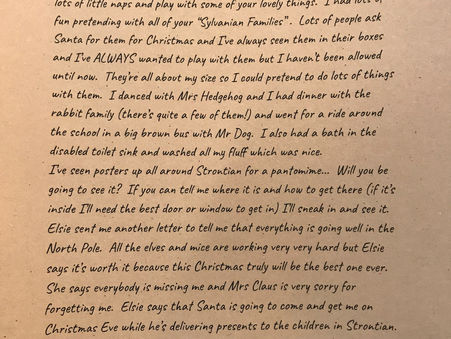 lots of little naps and play with some of your lovely things.  I had lots of
fun pretending with all of your “Sylvanian Families”.  Lots of people ask
Santa for them for Christmas and I've always seen them in their boxes
and I've ALWAYS wanted to play with them but I haven't been allowed
until now.  They're all about my size so I could pretend to do lots of things
with them.  I danced with Mrs Hedgehog and I had dinner with the
rabbit family (there's quite a few of them!) and went for a ride around
the school in a big brown bus with Mr Dog.  I also had a bath in the
disabled toilet sink and washed all my fluff which was nice.
I've seen posters up all around Strontian for a pantomime...  Will you be
going to see it?  If you can tell me where it is and how to get there (if it's
inside I'll need the best door or window to get in) I'll sneak in and see it.
Elsie sent me another letter to tell me that everything is going well in the
North Pole.  All the elves and mice are working very very hard but Elsie
says it's worth it because this Christmas truly will be the best one ever.
She says everybody is missing me and Mrs Claus is very sorry for
forgetting me.  Elsie says that Santa is going to come and get me on
Christmas Eve while he's delivering presents to the children in Strontian.